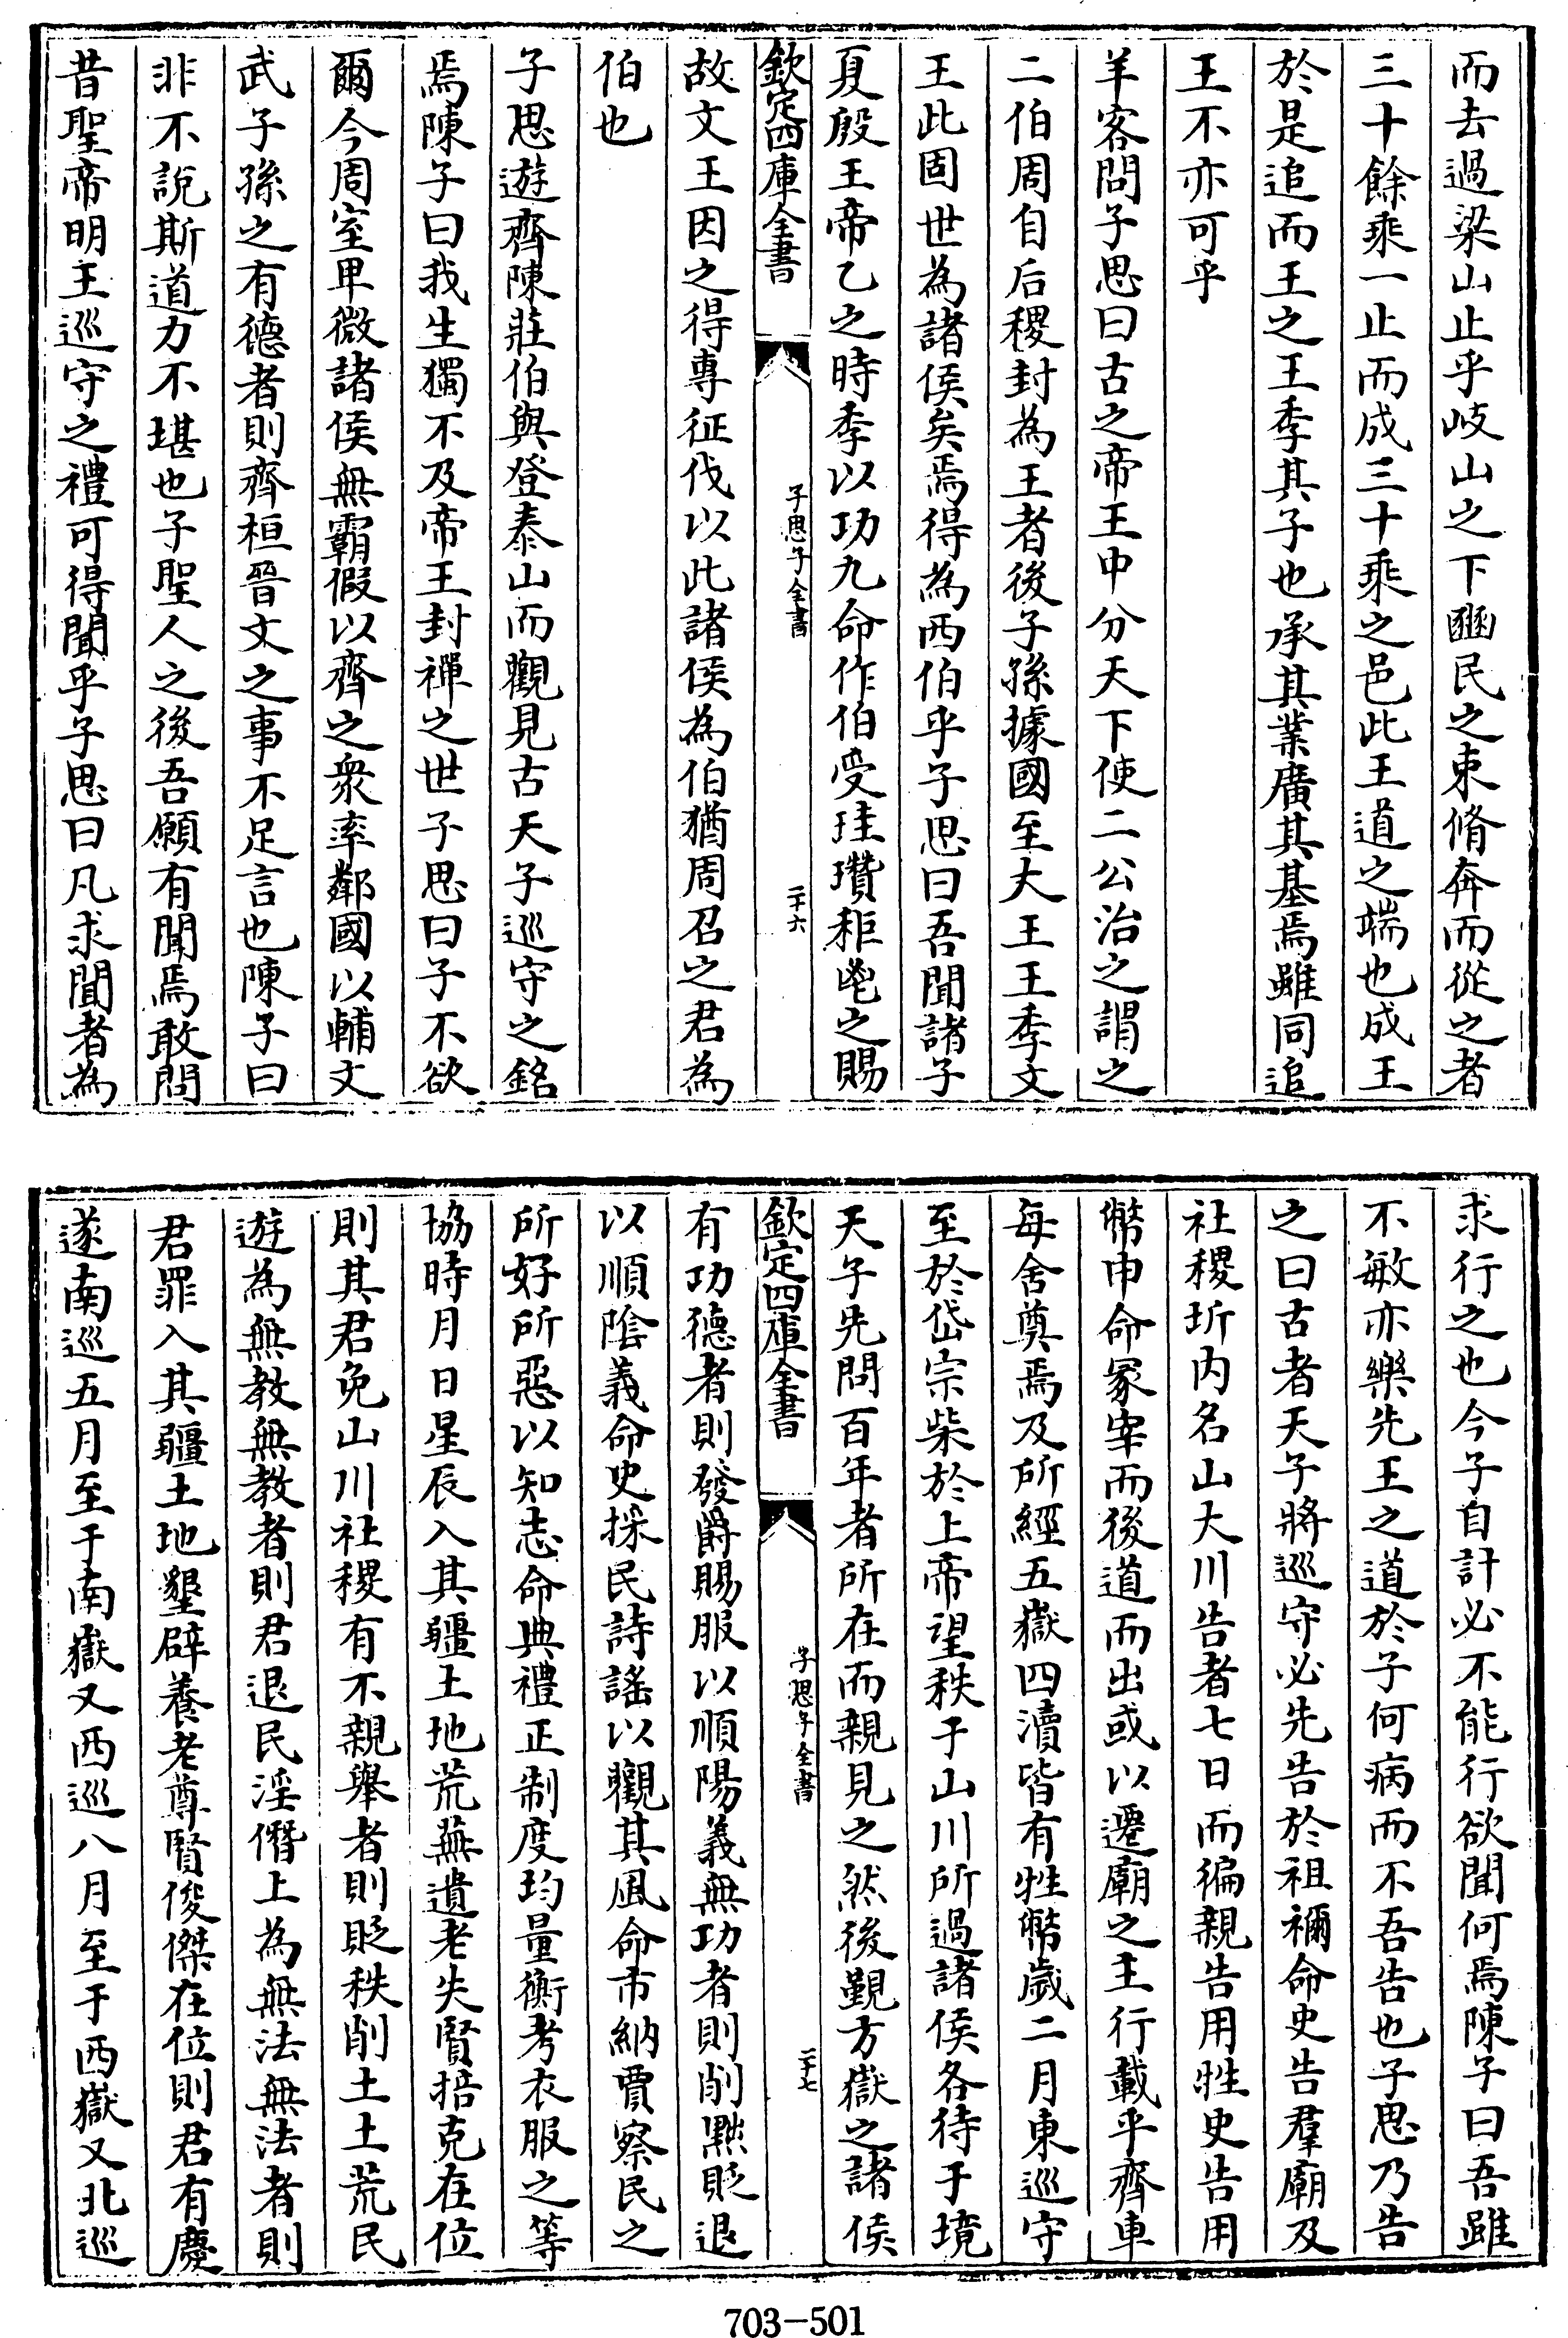 而去過梁山止乎岐山之下豳民之束脩奔而從之者
三十餘乘一止而成三十乘之邑此王道之端也成王
於是追而王之王季其子也承其業廣其基焉雖同追
王不亦可乎
羊客問子思曰古之帝王中分天下使二公治之謂之
二伯周自后稷封為王者後子孫據國至大王王季文
王此固世為諸侯矣焉得為西伯乎子思曰吾聞諸子
夏殷王帝乙之時季以功九命作伯受珪瓚秬鬯之賜
欽定四庫全書
子思子全書
二十六
故文王因之得專征伐以此諸侯為伯猶周召之君為
伯也
子思遊齊陳莊伯與登泰山而觀見古天子巡守之銘
焉陳子曰我生獨不及帝王封禪之世子思曰子不欲
爾今周室卑微諸侯無霸假以齊之衆率鄰國以輔文
武子孫之有德者則齊桓晉文之事不足言也陳子曰
非不說斯道力不堪也子聖人之後吾願有聞焉敢問
昔聖帝明王巡守之禮可得聞乎子思曰凡求聞者為
求行之也今子自計必不能行欲聞何焉陳子曰吾雖
不敏亦樂先王之道於子何病而不吾告也子思乃告
之曰古者天子將巡守必先告於祖禰命史告羣廟及
社稷圻内名山大川告者七日而徧親告用牲史告用
幣申命冢宰而後道而出或以遷廟之主行載乎齊車
每舍奠焉及所經五嶽四瀆皆有牲幣歲二月東巡守
至於岱宗柴於上帝望秩于山川所過諸侯各待于境
天子先問百年者所在而親見之然後覲方嶽之諸侯
欽定四庫全書
子思子全書
二十七
有功德者則發爵賜服以順陽義無功者則削黜貶退
以順陰義命史採民詩謠以觀其風命市納賈察民之
所好所惡以知志命典禮正制度均量衡考衣服之等
協時月日星辰入其疆土地荒蕪遺老失賢掊克在位
則其君免山川社稷有不親舉者則貶秩削土土荒民
遊為無教無教者則君退民淫僭上為無法無法者則
君罪入其疆土地墾辟養老尊賢俊傑在位則君有慶
遂南巡五月至于南嶽又西巡八月至于西嶽又北巡
703-501